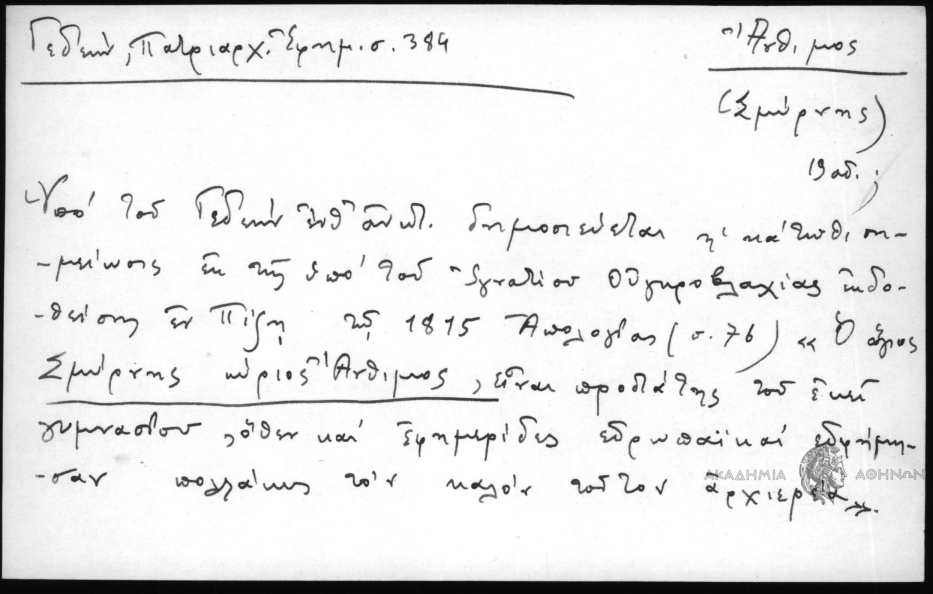 Γεδεών, Πατριαρχ. Ἐφημ. σ. 384
Ἄνθιμος
(Σμύρνης)
19 αἰ.;
Ὑπὸ τοῦ Γεδεὼν ἔνθ' ἀνωτ. δημοσιεύεται ἡ κάτωθι ση-
-μείωσις ἐκ τῆς ὑπὸ τοῦ Ἰγνατίου Οὑγγροβλαχίας ἐκδο-
-θείσης ἐν Πίζῃ τῷ 1815 Ἀπολογίας (σ. 76) «Ὁ ἅγιος
Σμύρνης κύριος Ἄνθιμος, εἶναι προστάτης τοῦ ἐκεῖ
γυμνασίου, ὅθεν καὶ ἐφημερίδες εὐρωπαϊκαὶ εὐφήμη-
-σαν πολλάκις τὸν καλὸν τοῦτον ἀρχιερέα».
ΑΚΑΔΗΜΙΑ ΑΘΗΝΩΝ